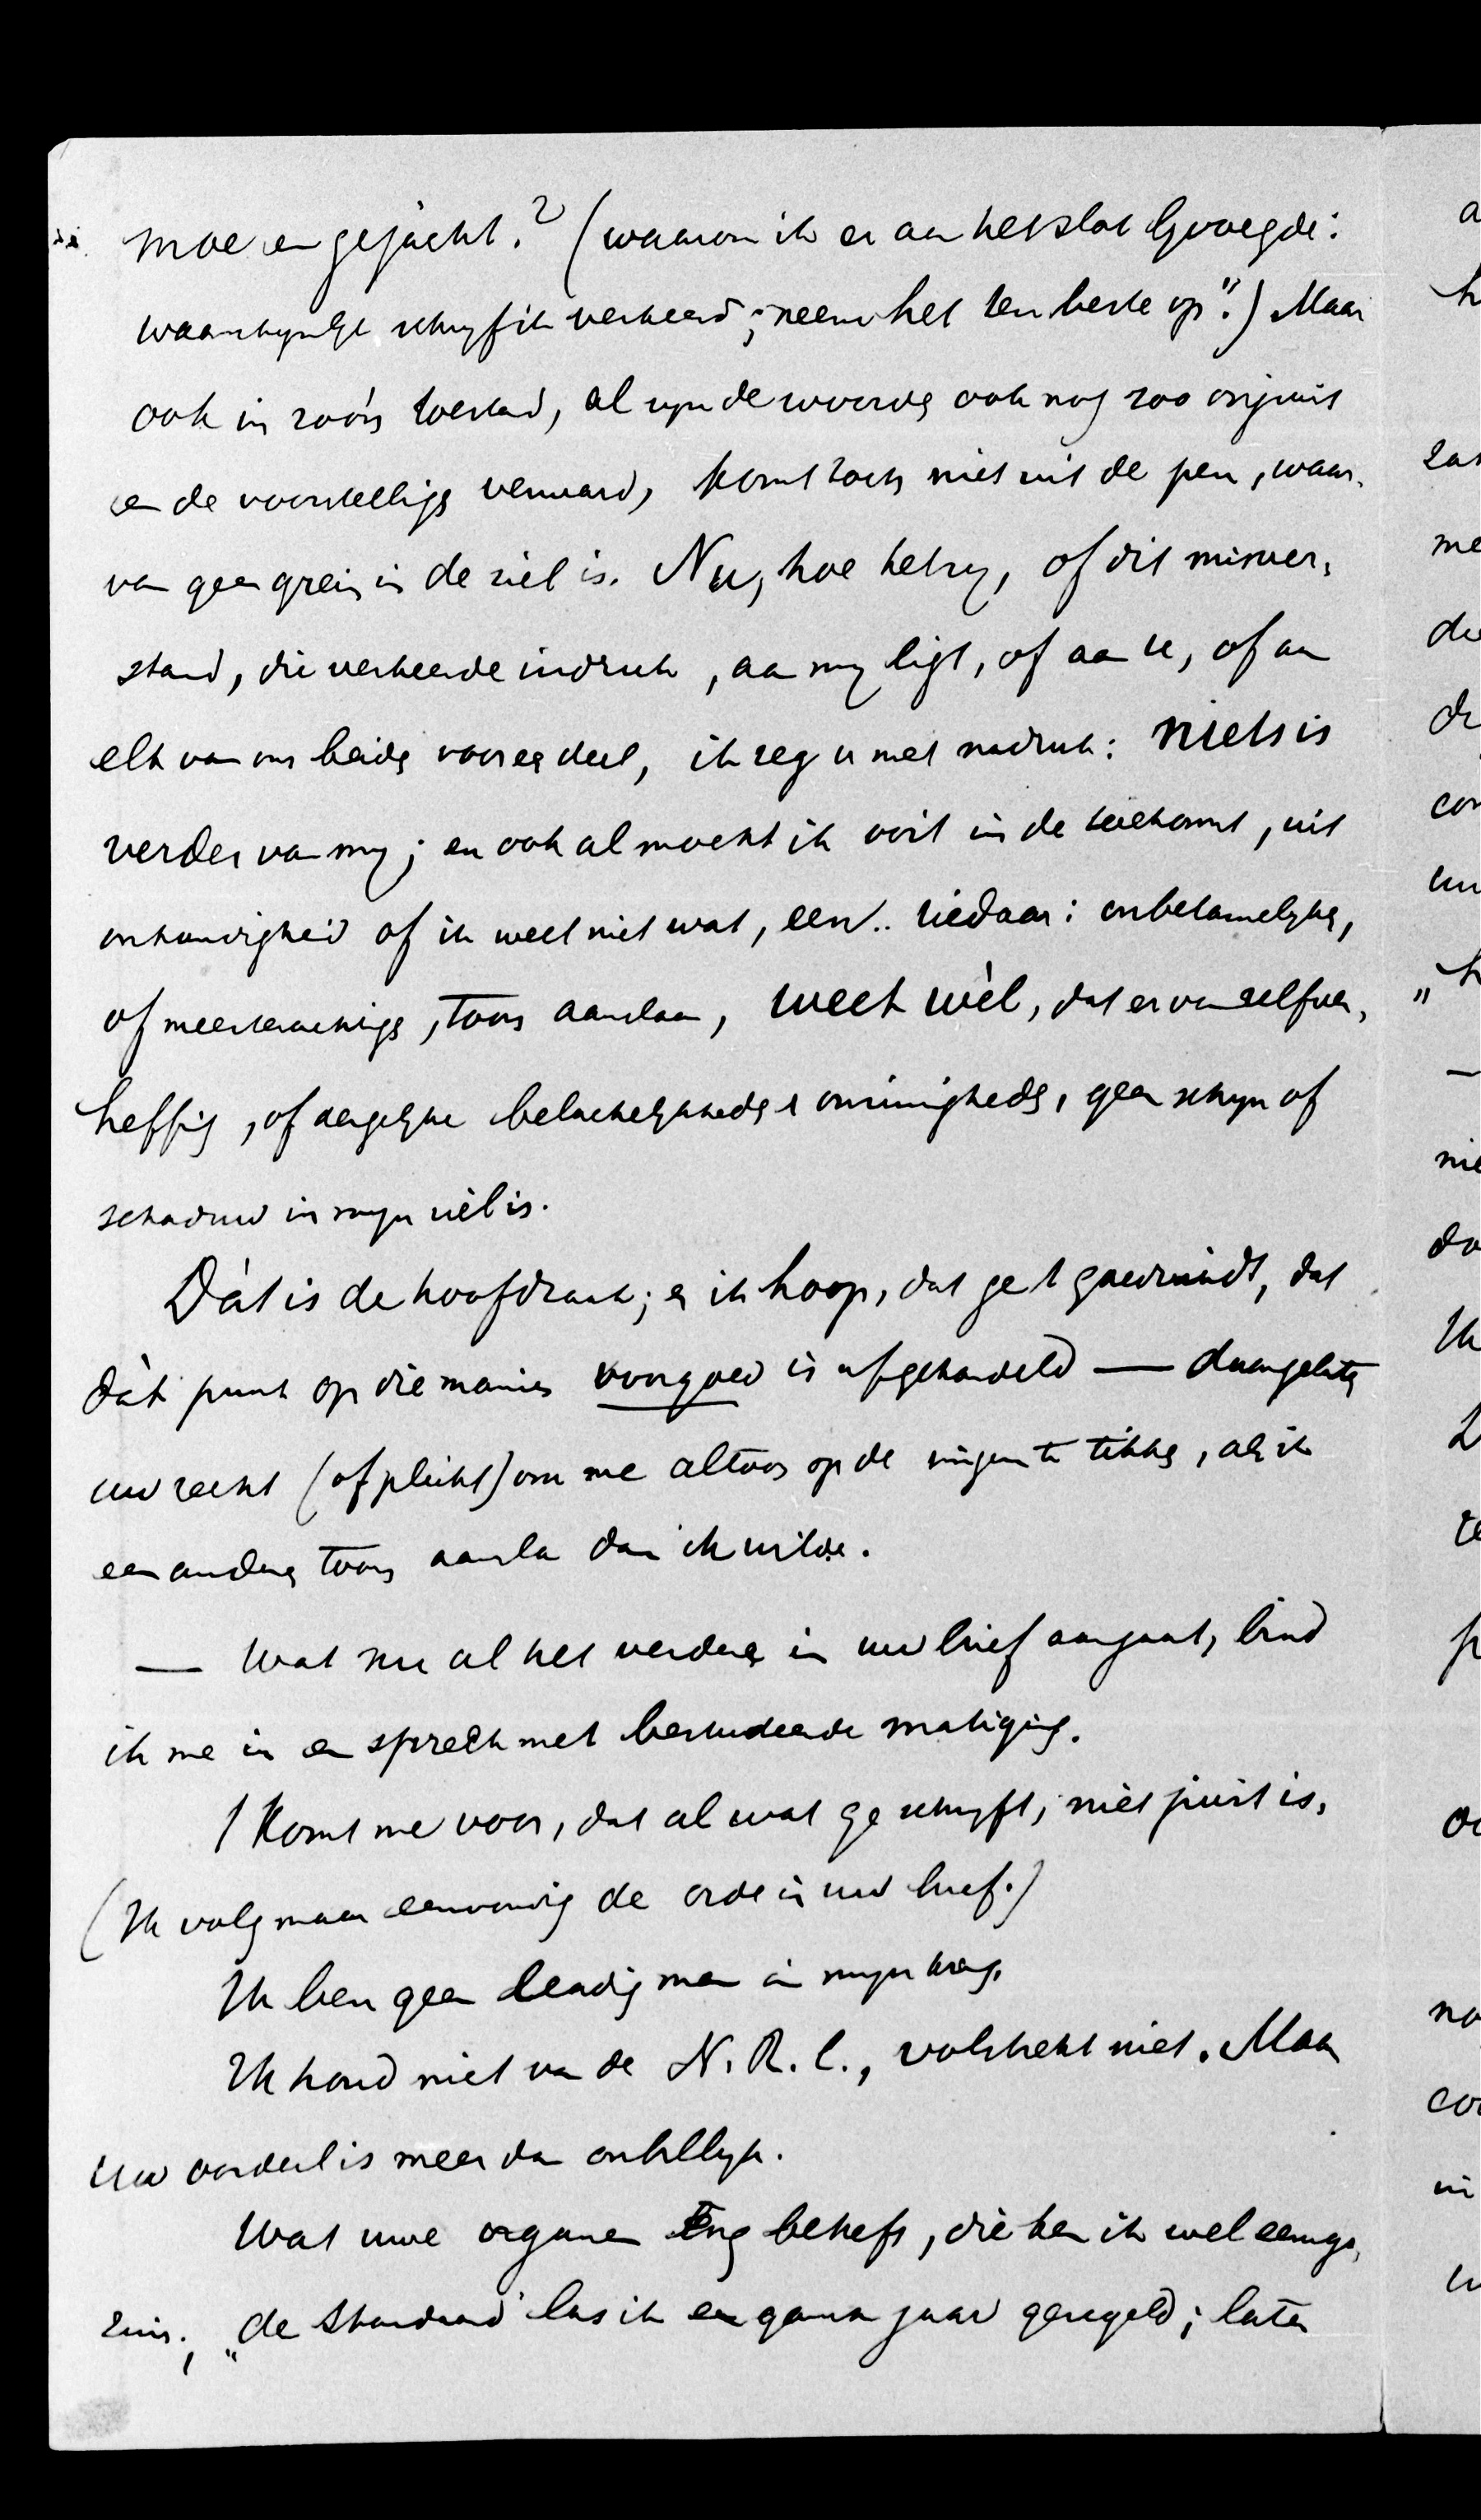 moe en gejacht? (waarom ik er aan het slot bijvoegde:
waarschynlyk schryf ik verkeerd; neem het ten beste op".) Maar
ook in zóó'n toestand, al zyn de woorden ook nog zoo onjuist
en de voorstellings verward, komt toch niet uit de pen, waar-
van geen grein in de ziel is. Nu, hoe het zy, of dit misver-
stand, die verkeerde indruk, aan my ligt, of aan u, of aan
elk van ons beiden voor een deel, ik zeg u met nadruk: niets is
verder van my; en ook al mocht ik ooit in de toekomst, uit
onhandigheid of ik weet niet wat, een .. ziedaar: onbetamelyken,
of meesterachtigen, toon aanslaan, weet wèl, dat er van zelfver-
heffing, of dergelyke belachelykheden & onzinnigheden, geen schyn of
schaduw in myn ziel is.
Dàt is de hoofdzaak; en ik hoop, dat ge 't goedvindt, dat
dàt punt op die manier voorgoed is afgehandeld — daargelaten
uw recht (of plicht) om me altoos op de vingers te tikken, als ik
een anderen toon aansla dan ik wilde.
— Wat nu al het verdere in uw brief aangaat, bind
ik me in en spreek met bestudeerde matiging.
't Komt me voor, dat al wat ge schryft, niet juist is.
(Ik volg maar eenvoudig de orde in uw brief.)
Ik ben geen man in myn
Ik houd niet van de N. R. C., volstrekt niet. Maar
Uw oordeel is meer dan onbillyk.
Wat uwe organen betreft, die ken ik wel eenigs-
zins; „de Standaard" las ik een gansch jaar geregeld; later